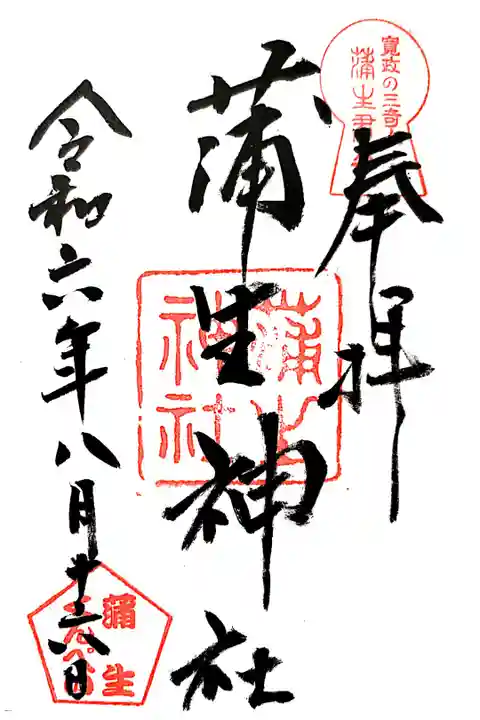 寛政の三奇
蒲生君
奉拝
蒲生神社
蒲生神社
令和六年八月十六日
蒲生